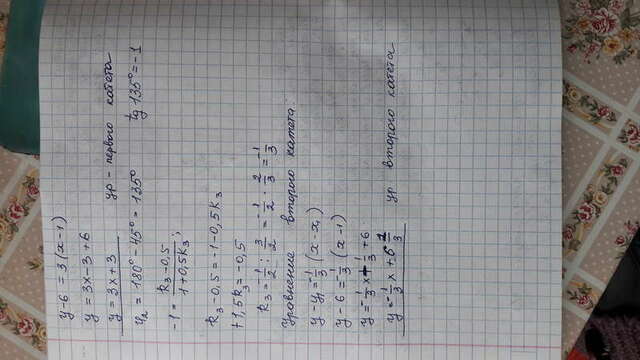 y-6 = 3(x-1)
y = 3x-3+6
y = 3x+3 ур - первого катета
φ₂ = 180° - 45° = 135° tg 135° = -1
-1 = (k₃-0,5)/(1+0,5k₃);
k₃-0,5 = -1-0,5k₃
+1,5k₃ = -0,5
k₃ = -1/2 : 3/2 = -1/2 · 2/3 = -1/3
Уравнение второго катета.
y-y₁ = -1/3 (x-x₁)
y-6 = -1/3 (x-1)
y = -1/3 x + 1/3 + 6
y = -1/3 x + 6 1/3 ур второго катета